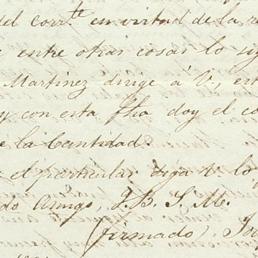 del corr.te en virtud de la
e entre otras cosas lo sig
Martinez dirige á V, es
y con esta fha doy el co
e la Cantidad.
e el particular diga V. lo
do Amigo, Q. B. S. M.
(firmado).